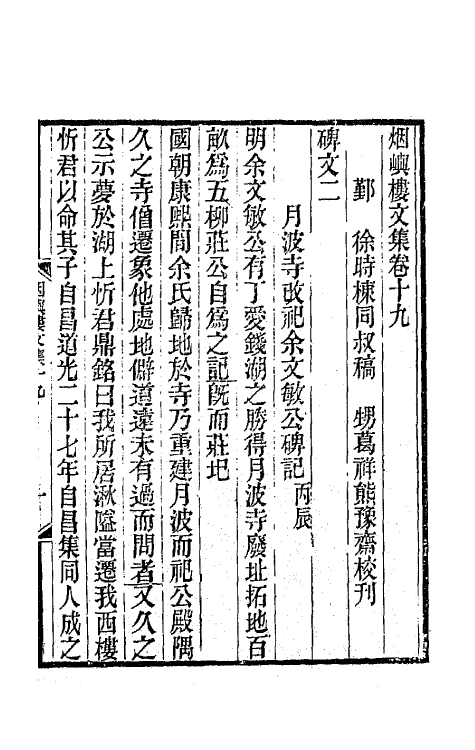 烟嶼樓文集卷十九
鄞　徐時棟同叔稿　甥葛祥熊豫齋校刊
碑文二
月波寺改祀余文敏公碑記丙辰
明余文敏公有丁愛錢湖之勝得月波寺廢址拓地百
畝爲五柳莊公自爲之記旣而莊圯
國朝康熙間余氏歸地於寺乃重建月波而祀公殿隅
久之寺僧遷象他處地僻道遠未有過而問者又久之
公示夢於湖上忻君鼎銘曰我所居湫隘當遷我西樓
忻君以命其子自昌道光二十七年自昌集同人成之
烟嶼樓文集十九
一